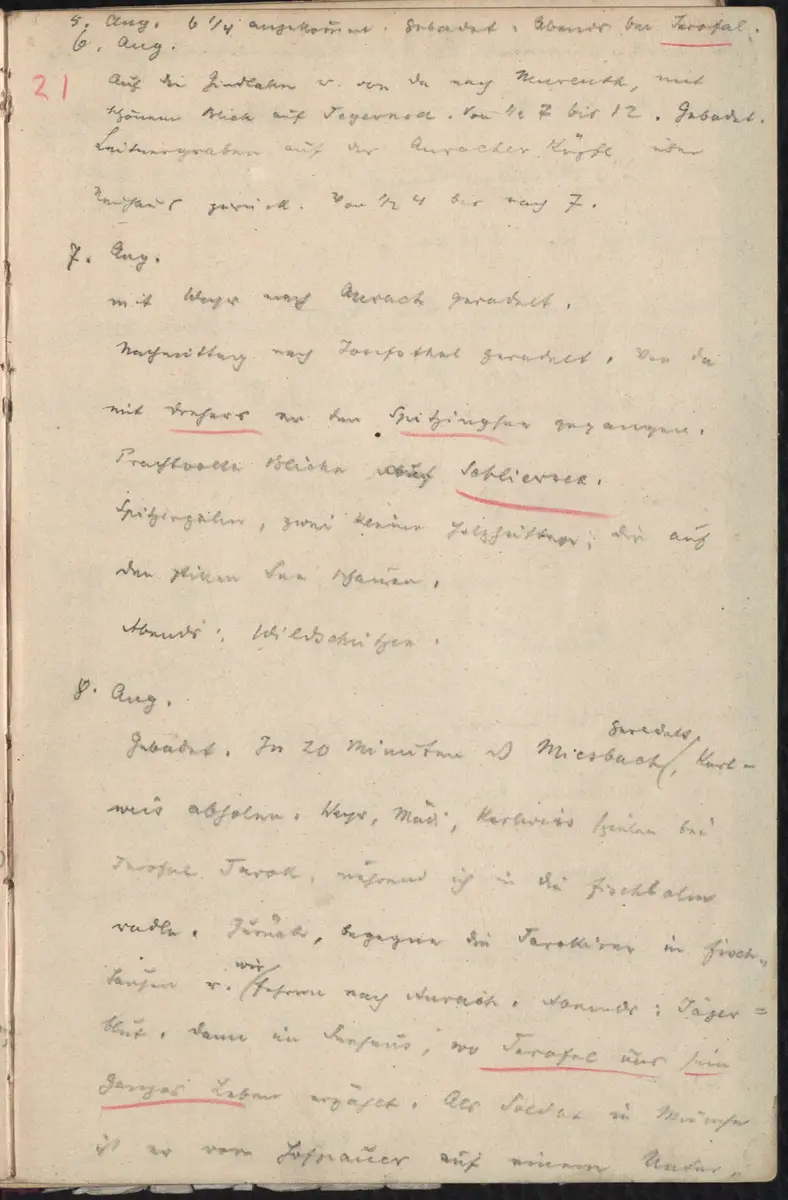 5. Aug. 6 1/4 angekom̅en. Gebadet. Abends bei Terofal.
6. Aug.
21
Auf die Gindlalm u. von da nach Neureuth, mit
schönem Blick auf Tegernsee. Von 1/2 7 bis 12. Gebadet.
Leitnergraben auf das Auracher Köpfl, über
Neuhaus zurück. Von 1/2 4 bis nach 7.
7. Aug.
mit Weyr nach Aurach geradelt.
Nachmittag nach Josefsthal geradelt. Von da
mit Drehers an den Spitzingsee gegangen.
Prachtvolle Blicke auf Schliersee.
Spitzingalm, zwei kleine Holzhütten, die auf
den stillen See schauen.
Abends: Wildschützen.
8. Aug.
Gebadet. In 20 Minuten Miesbach geradelt, Karl-
weis abholen. Weyr, Mädi, Karlweis spielen bei
Terofal Tarok, während ich in die Fischbalm
radle. Zurück, begegne die Tarokirer in Fisch-
hausen u. wir fahren nach Aurach. Abends: Jäger=
blut. Dann im Seehaus, wo Terofal uns sein
ganzes Leben erzählt. Als Soldat in München
ist er vom Hofpauer auf einem Unter-